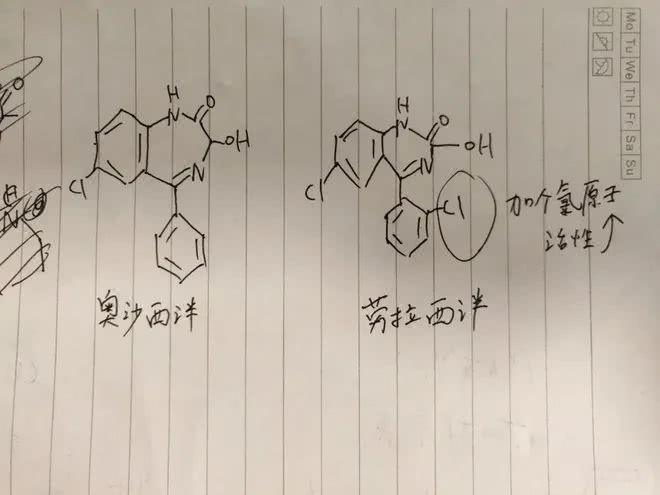 Mo Tu We Th Fr Sa Su
H
N
O
OH
N
Cl
奥沙西泮
H
N
O
OH
N
Cl
Cl
劳拉西泮
加个氯原子
活性↑